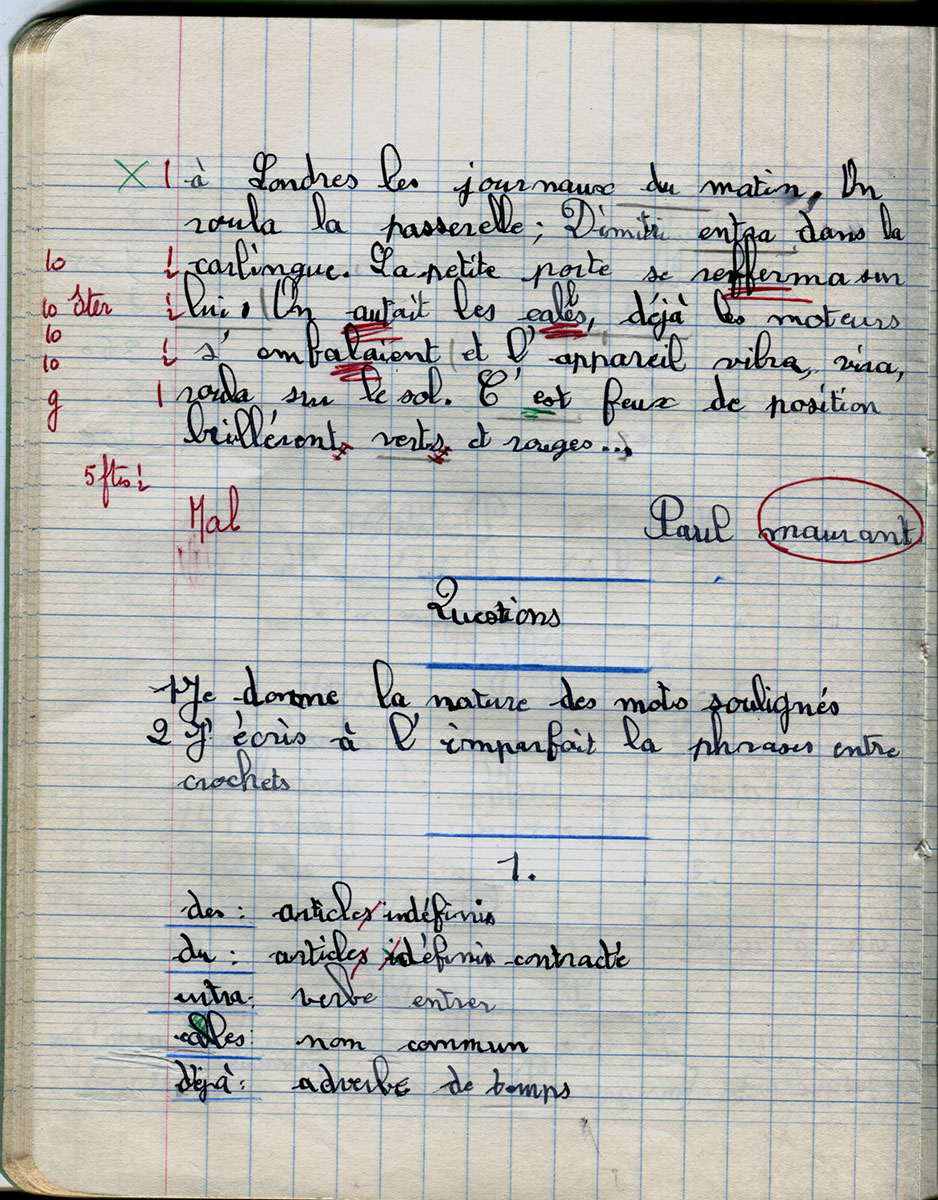 X 1 à Londres les journaux du matin, On
roula la passerelle ; Dimitri entra dans la
10 carlingue. La petite porte se refferma sur
10 lui. On autait les calles, déjà les moteurs
10
10 s'embalaient et l'appareil vibra, vira,
9 1 roula sur le sol. C'est feux de position
brillèront verts et rouges...
Mal
Paul maurant
Questions
1 Je donne la nature des mots soulignés
2 J'écris à l'imparfait la phrases entre
crochets
1.
des : articles indéfinis
du : articles idéfinis contracté
entra : verbe entrer
calles : nom commun
déjà : adverbe de temps